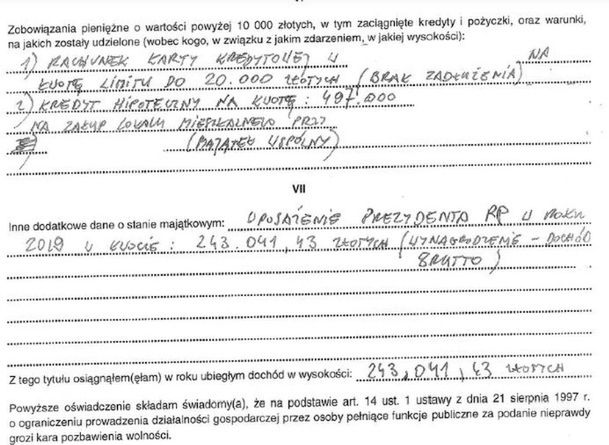 Zobowiązania pieniężne o wartości powyżej 10 000 złotych, w tym zaciągnięte kredyty i pożyczki, oraz warunki,
na jakich zostały udzielone (wobec kogo, w związku z jakim zdarzeniem, w jakiej wysokości):
1) RACHUNEK KARTY KREDYTOWEJ U NA
KWOTĘ LIMITU DO 20.000 ZŁOTYCH (BRAK ZADŁUŻENIA)
2) KREDYT HIPOTECZNY NA KWOTĘ: 497.000
NA ZAKUP LOKALU MIESZKALNEGO PRZY
(MAJĄTEK WSPÓLNY)
VII
Inne dodatkowe dane o stanie majątkowym: UPOSAŻENIE PREZYDENTA RP W ROKU
2019 W KWOCIE: 243.041,43 ZŁOTYCH (WYNAGRODZENIE - DOCHÓD
BRUTTO)
Z tego tytułu osiągnąłem(ęłam) w roku ubiegłym dochód w wysokości: 243,041,43 ZŁOTYCH
Powyższe oświadczenie składam świadomy(a), że na podstawie art. 14 ust. 1 ustawy z dnia 21 sierpnia 1997 r.
o ograniczeniu prowadzenia działalności gospodarczej przez osoby pełniące funkcje publiczne za podanie nieprawdy
grozi kara pozbawienia wolności.